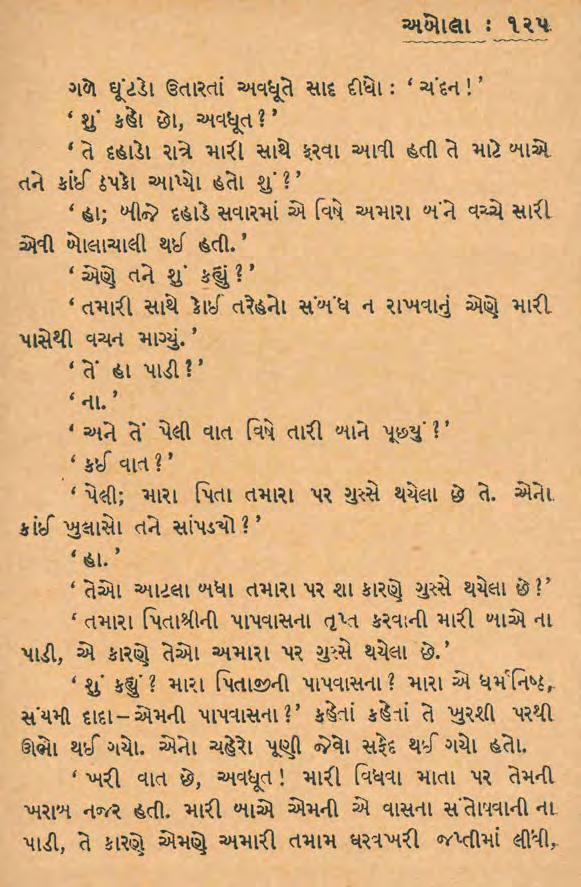 અબોલા : ૧૨૫
ગળે ઘૂંટડો ઉતારતાં અવધૂતે સાદ દીધો : ‘ ચંદન ! ’
‘ શું કહો છો, અવધૂત ? ’
‘ તે દહાડો રાત્રે મારી સાથે ફરવા આવી હતી તે માટે બાએ
તને કાંઈ ઠપકો આપ્યો હતો શું ? ’
‘ હા; બીજે દહાડે સવારમાં એ વિષે અમારા બંને વચ્ચે સારી
એવી બોલાચાલી થઈ હતી. ’
‘ એણે તને શું કહ્યું ? ’
‘ તમારી સાથે કોઈ તરેહનો સંબંધ ન રાખવાનું એણે મારી
પાસેથી વચન માગ્યું. ’
‘ તેં હા પાડી ? ’
‘ ના. ’
‘ અને તેં પેલી વાત વિષે તારી બાને પૂછ્યું ? ’
‘ કઈ વાત ? ’
‘ પેલી; મારા પિતા તમારા પર ગુસ્સે થયેલા છે તે. એનો
કાંઈ ખુલાસો તને સાંપડયો ? ’
‘ હા. ’
‘ તેઓ આટલા બધા તમારા પર શા કારણે ગુસ્સે થયેલા છે ? ’
‘ તમારા પિતાશ્રીની પાપવાસના તૃપ્ત કરવાની મારી બાએ ના
પાડી, એ કારણે તેઓ અમારા પર ગુસ્સે થયેલા છે. ’
‘ શું કહ્યું ? મારા પિતાજીની પાપવાસના ? મારા એ ધર્મનિષ્ઠ,
સંયમી દાદા – એમની પાપવાસના ? ’ કહેતાં કહેતાં તે ખુરશી પરથી
ઊભો થઈ ગયો. એનો ચહેરો પૂણી જેવો સફેદ થઈ ગયો હતો.
‘ ખરી વાત છે, અવધૂત ! મારી વિધવા માતા પર તેમની
ખરાબ નજર હતી. મારી બાએ એમની એ વાસના સંતોષવાની ના
પાડી, તે કારણે એમણે અમારી તમામ ઘરવખરી જપ્તીમાં લીધી,